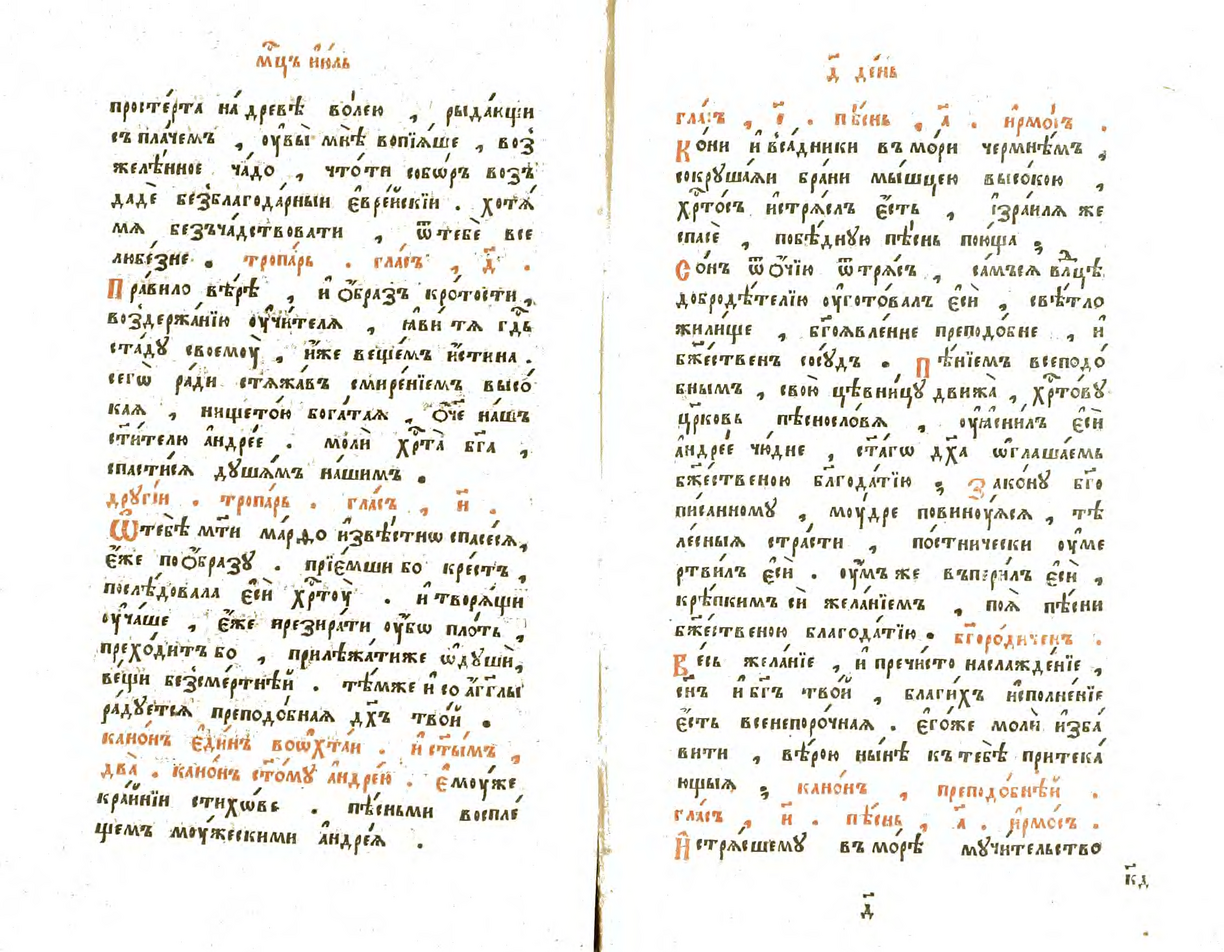 мц҃ъ і҆ю́ль
просте́рта на́ древѣ во́лею , рыда́ющи
съ пла́чемъ , ᲂу҆вы̀ мнѣ̀ вопїѧ́ше , воз̾
желѣ́нное ча́до , что́ ти собо́ръ возъ
дадѐ без̾благода́рныи є҆вре́йскїи . хотѧ́
мѧ безъча́дствовати , ѿ тебѐ все
любе́зне . тропа́рь . гла́съ , д҃ .
Пра́вило вѣ́рѣ , и҆ ѻ҆́бразъ кро́тости ,
воздержа́нїю ᲂу҆чи́телѧ , ꙗ҆ви́ тѧ гдⷭ҇ь
ста́дꙋ своемꙋ̀ , и҆́же веще́мъ и҆́стина .
сегѡ̀ ра́ди стѧжа́въ смире́нїемъ высо́
каѧ , нището́ю бога́таѧ , ѻ҆́ч҃е на́шъ
ст҃и́телю а҆ндре́е . молѝ хрⷭ҇та̀ бг҃а ,
спасти́сѧ дꙋша́мъ на́шимъ .
дрꙋгі́и . тропа́рь . гла́съ , и҃ .
Ѿ тебѣ̀ мт҃и ма́рѳо и҆звѣ́стнѡ спасе́сѧ ,
є҆́же по ѻ҆́бразꙋ . прїе́мши бо кре́стъ ,
послѣ́довала є҆сѝ хрⷭ҇тꙋ̀ . и҆ творѧ́щи
ᲂу҆ча́ше , є҆́же презира́ти ᲂу҆́бѡ пло́ть ,
прехо́дитъ бо , прилѣжа́ти же ѡ҆ дꙋшѝ ,
ве́щи без̾сме́ртнѣй . тѣ́мже и҆ со а҆́гг҃лы
ра́дꙋетсѧ преподо́бнаѧ дх҃ъ тво́й .
кано́нъ є҆ди́нъ во ѻ҆хта́и . и҆ ст҃ы́мъ ,
два̀ . кано́нъ ст҃о́мꙋ а҆ндре́ю . є҆мꙋ́же
кра́йнїи стихѡ́ве . пѣ́сньми воспле́
щемъ мꙋ́жескими а҆ндре́ѧ .
д҃ де́нь
гла́съ , є҃ . пѣ́снь , а҃ . и҆рмо́съ .
Ко́ни и҆ вса́дники въ мо́ри чермнѣ́мъ ,
сокрꙋша́ѧи бра́ни мы́шцею высо́кою ,
хрⷭ҇то́съ и҆стрѧ́слъ є҆́сть , і҆зра́илѧ же
спасѐ , побѣ́днꙋю пѣ́снь пою́ща ;
Со́нъ ѿ ѻ҆́чїю ѿтрѧ́съ , са́мъ сѧ влⷣце
добродѣ́телїю ᲂу҆гото́валъ є҆сѝ , свѣ́тло
жили́ще , бг҃оѧвле́ние преподо́бне , и҆
бж҃е́ственъ сосꙋ́дъ . Пѣ́нїемъ всеподо́
бнымъ , свою̀ цѣвни́цꙋ дви́жа , хрⷭ҇то́вꙋ
цр҃ковь пѣснослѡ́вѧ , ᲂу҆ꙗсни́лъ є҆сѝ
а҆ндре́е чю́дне , ст҃а́гѡ дх҃а ѡ҆глаша́емь
бж҃е́ственою блгⷣода́тїю ; Зако́нꙋ бг҃о
пи́санномꙋ , мꙋ́дре повинꙋ́ѧсѧ , тѣ
ле́сныѧ стра́сти , по́стнически ᲂу҆ме
ртви́лъ є҆сѝ . ᲂу҆́мъ же въпери́лъ є҆сѝ ,
крѣ́пкимъ си жела́нїемъ , поѧ̀ пѣ́сни
бж҃е́ственою благода́тїю . бг҃оро́диченъ .
Ве́сь жела́нїе , и҆ пречи́сто наслажде́нїе ,
сн҃ъ и҆ бг҃ъ тво́й , благи́хъ и҆сполне́нїе
є҆́сть всенепоро́чнаѧ . є҆го́же молѝ и҆зба́
вити , вѣ́рою ны́нѣ къ тебѣ̀ притека́
ющыѧ ; кано́нъ , преподо́бнѣй .
гла́съ , и҃ . пѣ́снь , а҃ . и҆рмо́съ .
И҆стрѧ́сшемꙋ въ мо́рѣ мꙋчи́тельство
к҃д
д҃